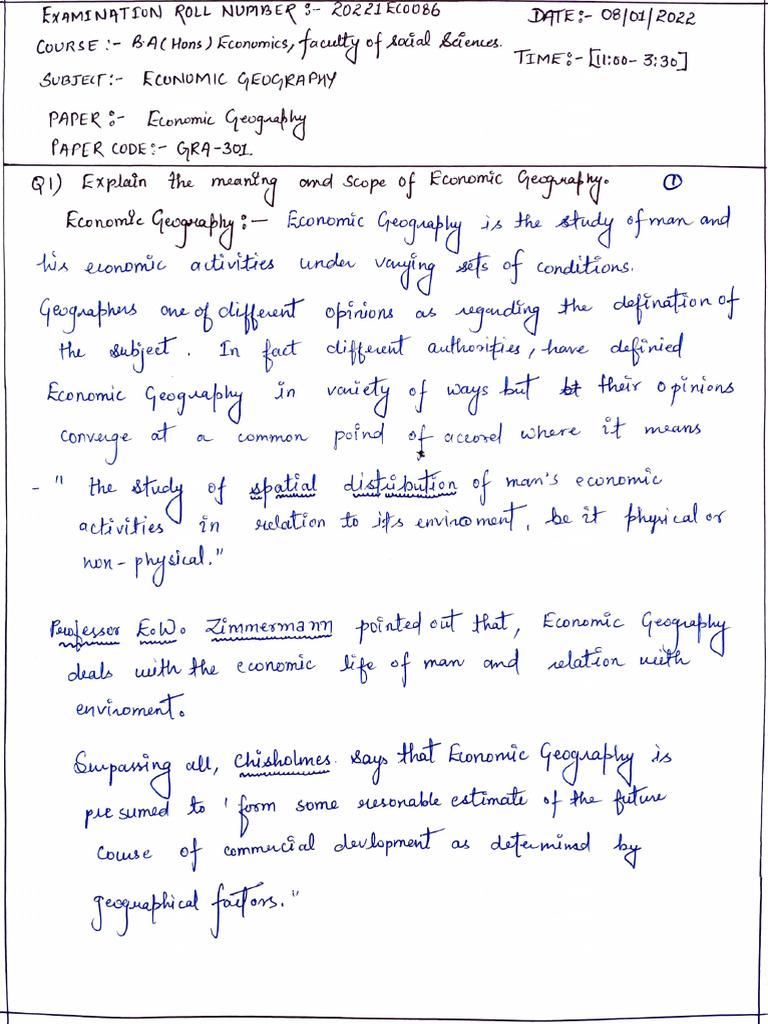 EXAMINATION ROLL NUMBER :- 20221ECO086
DATE:- 08/01/2022
COURSE :- B.A(Hons) Economics, faculty of Social Sciences.
TIME:- [11:00- 3:30]
SUBJECT:- ECONOMIC GEOGRAPHY
PAPER :- Economic Geography
PAPER CODE:- GRA-301.
Q1) Explain the meaning and scope of Economic Geography. ①
Economic Geography:- Economic Geography is the study of man and
his economic activities under varying sets of conditions.
Geographers one of different opinions as regarding the defination of
the subject. In fact different authorities, have definied
Economic Geography in variety of ways but their opinions
converge at a common poind of accord where it means
- " the study of spatial distribution of man's economic
activities in relation to it's enviroment, be it physical or
non-physical."
Professor E.W. Zimmermann pointed out that, Economic Geography
deals with the economic life of man and relation with
enviroment.
Surpassing all, Chisholmes says that Economic Geography is
presumed to 'form some resonable estimate of the future
course of commercial devlopment as determined by
geographical factors."